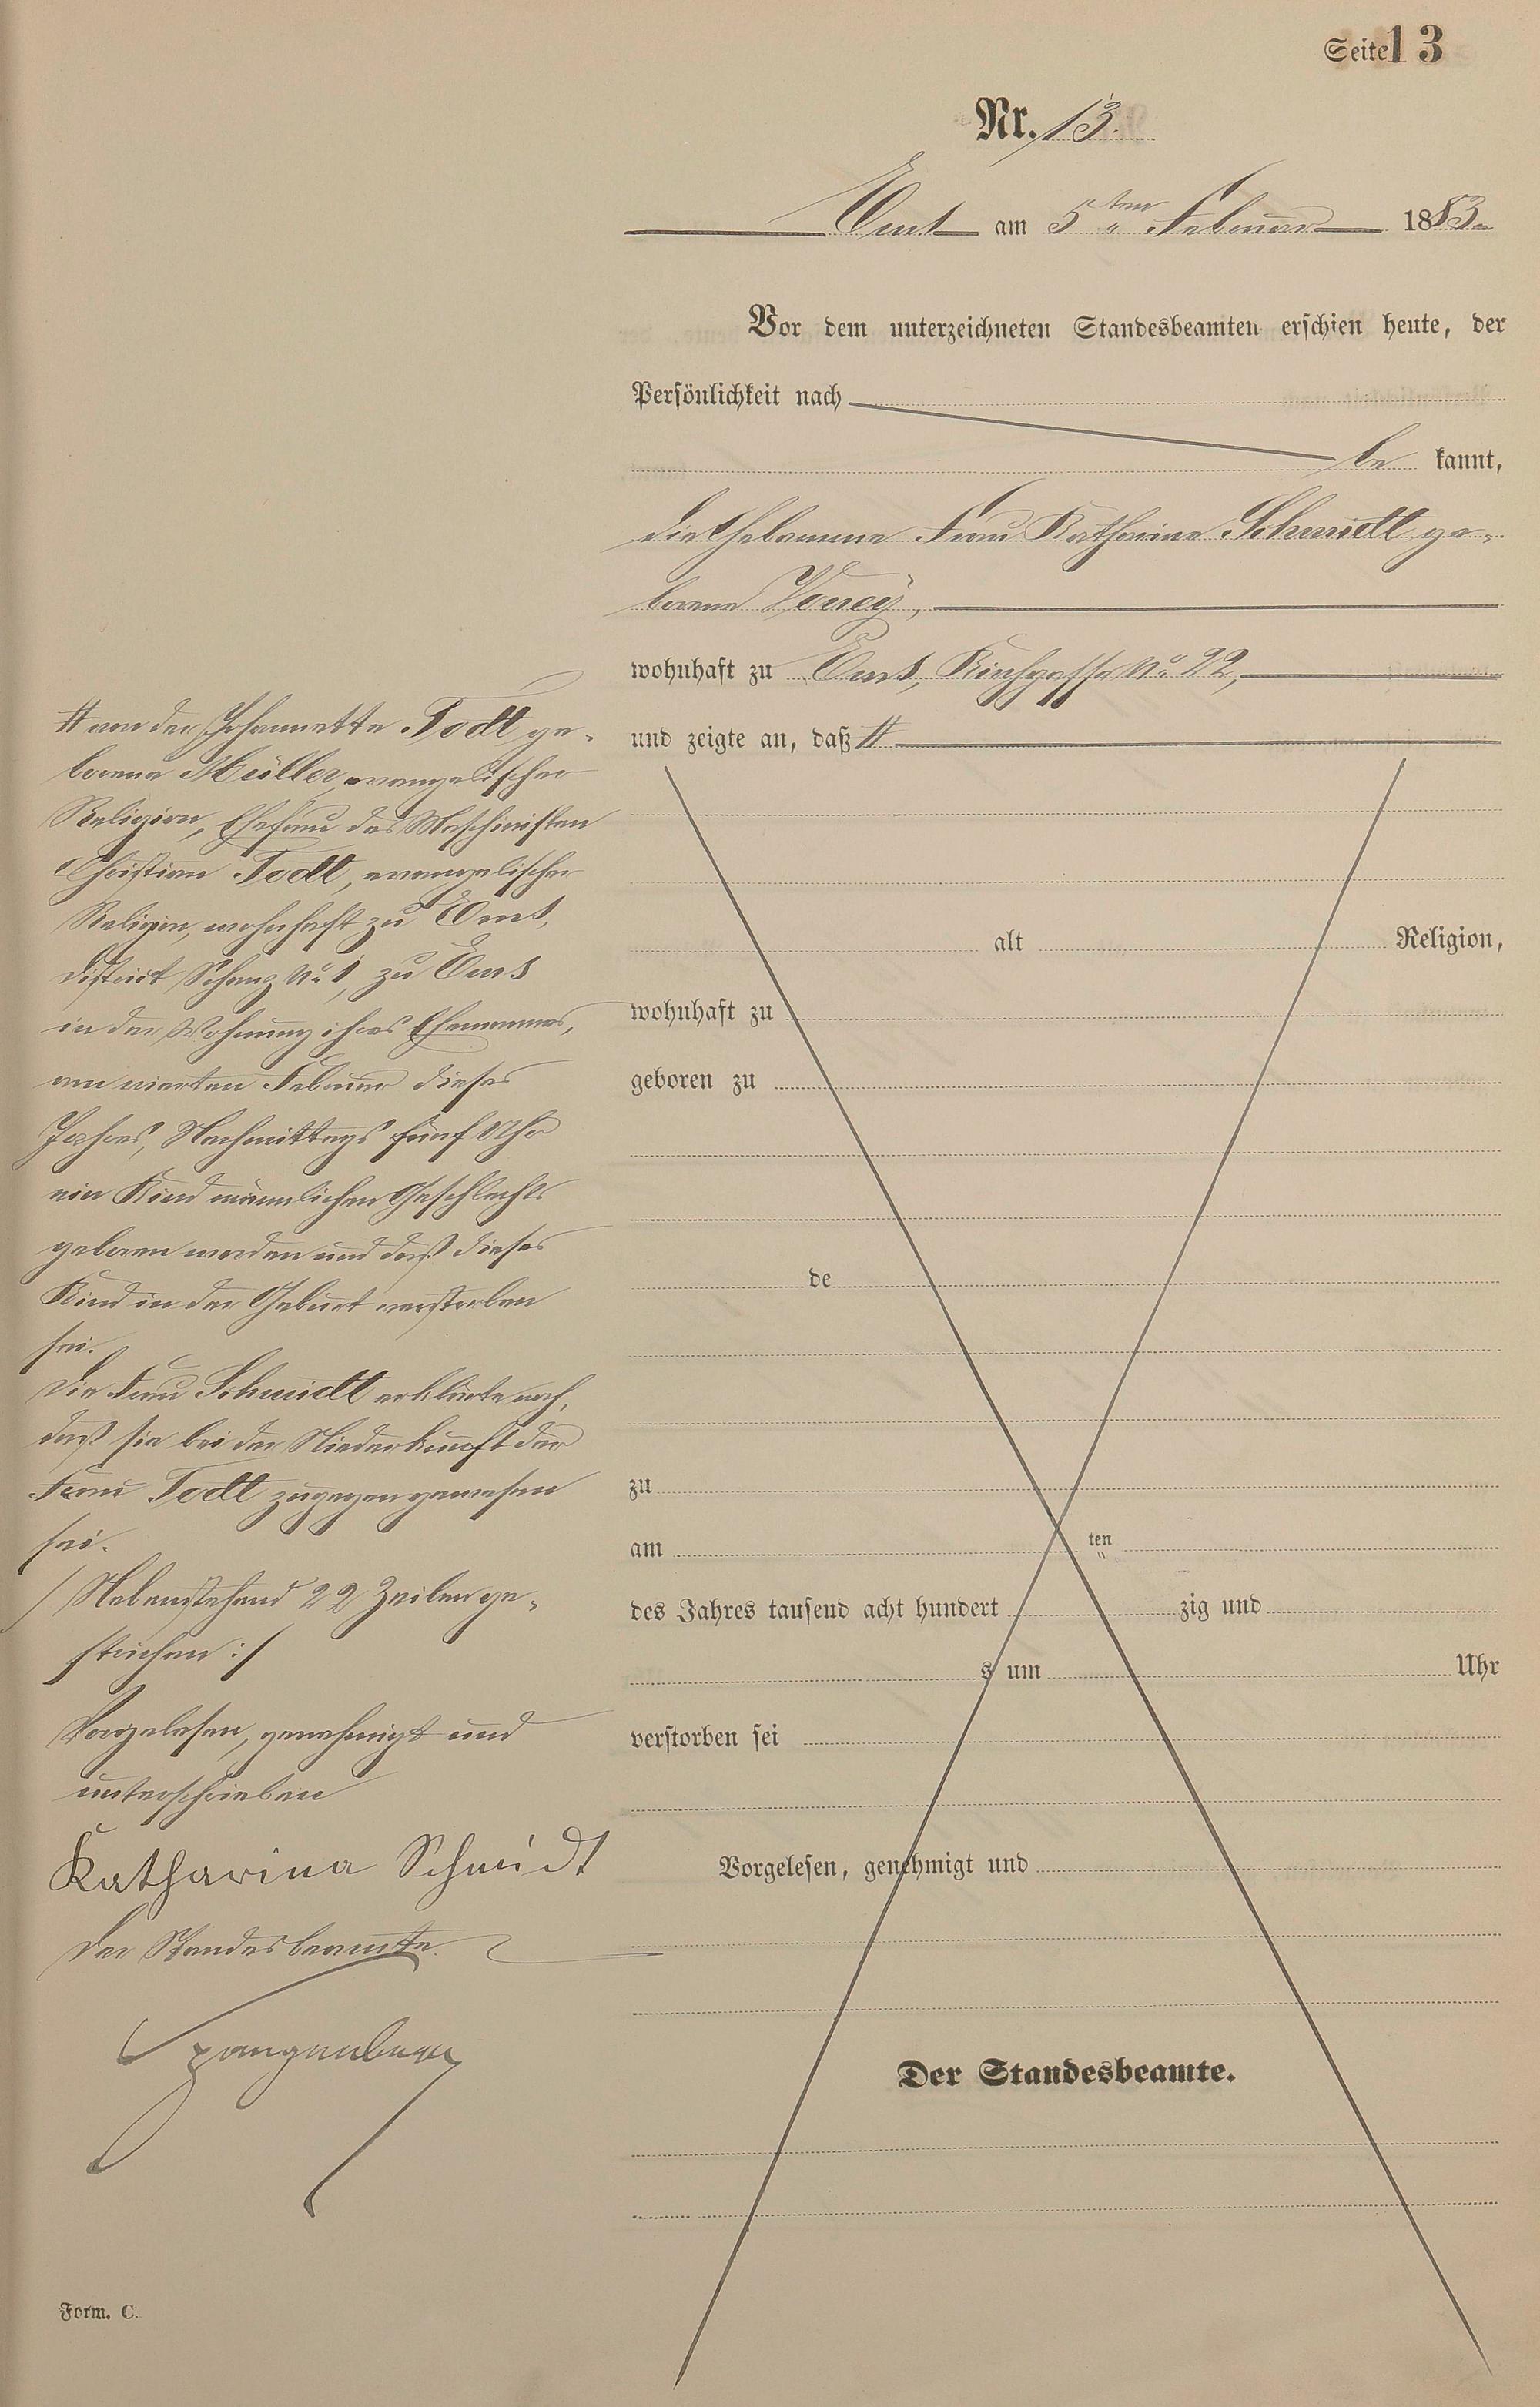 Seite 13
Nr. 13.
Ems am 5ten Februar 1883
Vor dem unterzeichneten Standesbeamten erschien heute, der
Persönlichkeit nach
be kannt,
die Hebamme Frau Katharina Schmidt ge-
borene
wohnhaft zu Ems, Kirchgasse No 22,
und zeigte an, daß #
# von der Johannette Todt ge-
borene Müller, evangelischer
Religion, Ehefrau des Maschinisten
Christian Todt, evangelischer
Religion, wohnhaft zu Ems,
District Schanz No 1, zu Ems
in der Wohnung ihres Ehemannes,
am vierten Februar dieses
Jahres, Nachmittags fünf Uhr
ein Kind männlichen Geschlechts
geboren worden und daß dieses
Kind in der Geburt verstorben
sei.
Die Frau Schmidt erklärte noch,
daß sie bei der Niederkunft der
Frau Todt zugegen gewesen
sei.
/ Nebenstehend 22 Zeilen ge-
strichen :/
Vorgelesen, genehmigt und
unterschrieben
Katharina Schmidt
Der Standesbeamte.
Spangenberg
alt Religion,
wohnhaft zu
geboren zu
de
zu
am ten
des Jahres tausend acht hundert zig und
s um Uhr
verstorben sei
Vorgelesen, genehmigt und
Der Standesbeamte.
Form. C.